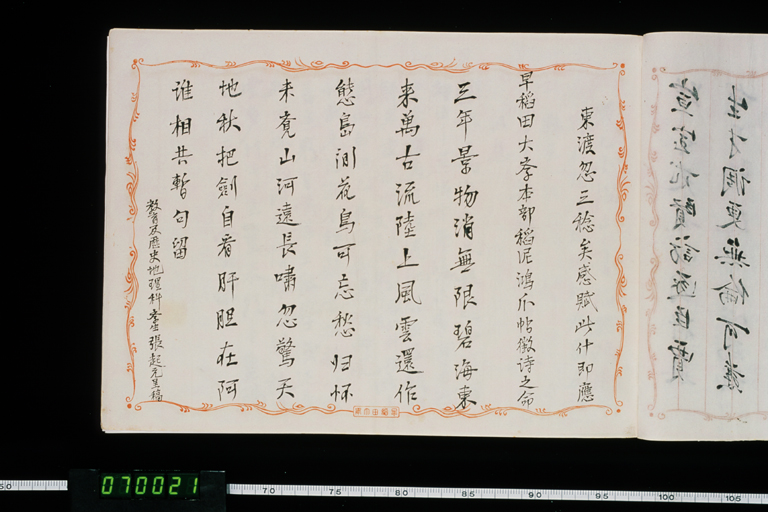 東渡忽三稔矣感賦此什即應
早稻田大学本部稻泥鴻爪帖徵诗之命
三年景物消無限碧海東
来萬古流陸上風雲還作
態島间花鳥可忘愁归怀
未竟山河遠長嘯忽驚天
地秋把劍自看肝胆在阿
谁相共暫句留
教育及歷史地理科学生張起元呈稿
070021
70 75 80 85 90 95 100 105